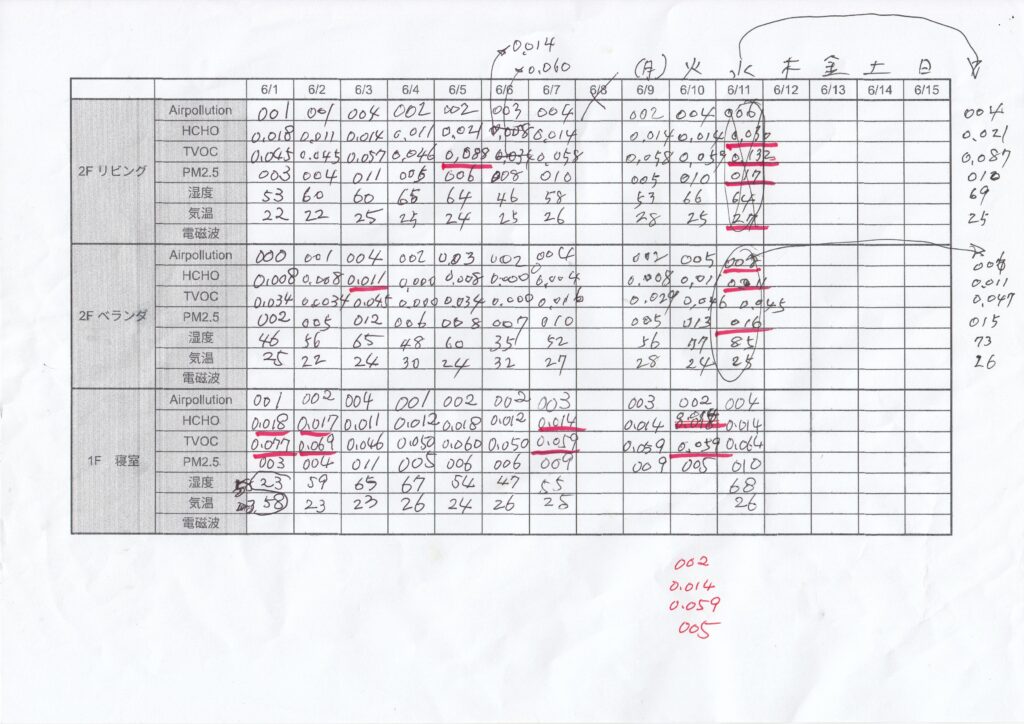 0.014
0.060
(月) 火 水 木 金 土 日
6/1 6/2 6/3 6/4 6/5 6/6 6/7 6/8 6/9 6/10 6/11 6/12 6/13 6/14 6/15
2F リビング
Airpollution 001 001 004 002 002 003 004 002 004 006 004
HCHO 0.018 0.011 0.014 0.011 0.021 0.008 0.014 0.014 0.014 0.030 0.021
TVOC 0.045 0.045 0.057 0.046 0.088 0.034 0.058 0.058 0.059 0.132 0.087
PM2.5 003 004 011 005 006 008 010 005 010 017 010
湿度 53 60 60 65 64 46 58 53 66 64 69
気温 22 22 25 25 24 25 26 28 25 27 25
電磁波
2F ベランダ
Airpollution 000 001 004 002 003 002 004 002 005 008 006
HCHO 0.008 0.008 0.011 0.000 0.008 0.000 0.004 0.008 0.011 0.011 0.011
TVOC 0.034 0.034 0.045 0.000 0.034 0.000 0.016 0.029 0.046 0.045 0.047
PM2.5 002 005 012 006 008 007 010 005 013 016 015
湿度 46 56 65 48 60 35 52 56 77 85 73
気温 25 22 24 30 24 32 27 28 24 25 26
電磁波
1F 寝室
Airpollution 001 002 004 001 002 002 003 003 002 004
HCHO 0.018 0.017 0.011 0.012 0.018 0.012 0.014 0.014 0.014
TVOC 0.077 0.069 0.046 0.050 0.060 0.050 0.059 0.059 0.059 0.064
PM2.5 003 004 011 005 006 006 009 009 005 010
湿度 58 23 59 65 67 54 47 55 68
気温 23 58 23 23 26 24 26 28 26
電磁波
002
0.014
0.059
005